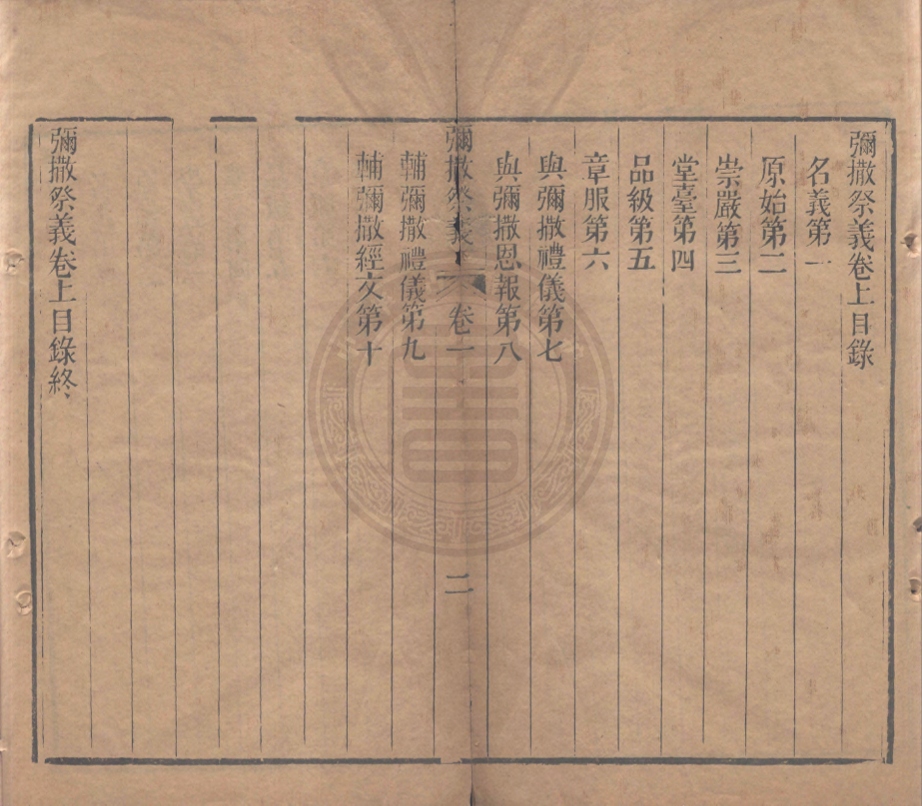 彌撒祭義卷上目錄
名義第一
原始第二
崇嚴第三
堂臺第四
品級第五
章服第六
與彌撒禮儀第七
與彌撒恩報第八
彌撒祭義 卷一 二
輔彌撒禮儀第九
輔彌撒經文第十
彌撒祭義卷上目錄終